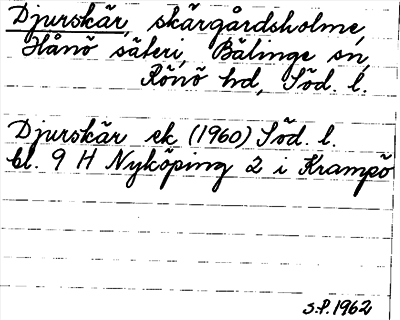 Djurskär, skärgårdsholme,
Hånö säteri, Bälinge sn,
Rönö hd, Söd. l.
Djurskär ek (1960) Söd. l.
bl. 9 H Nyköping 2 i Krampö
S.P. 1962